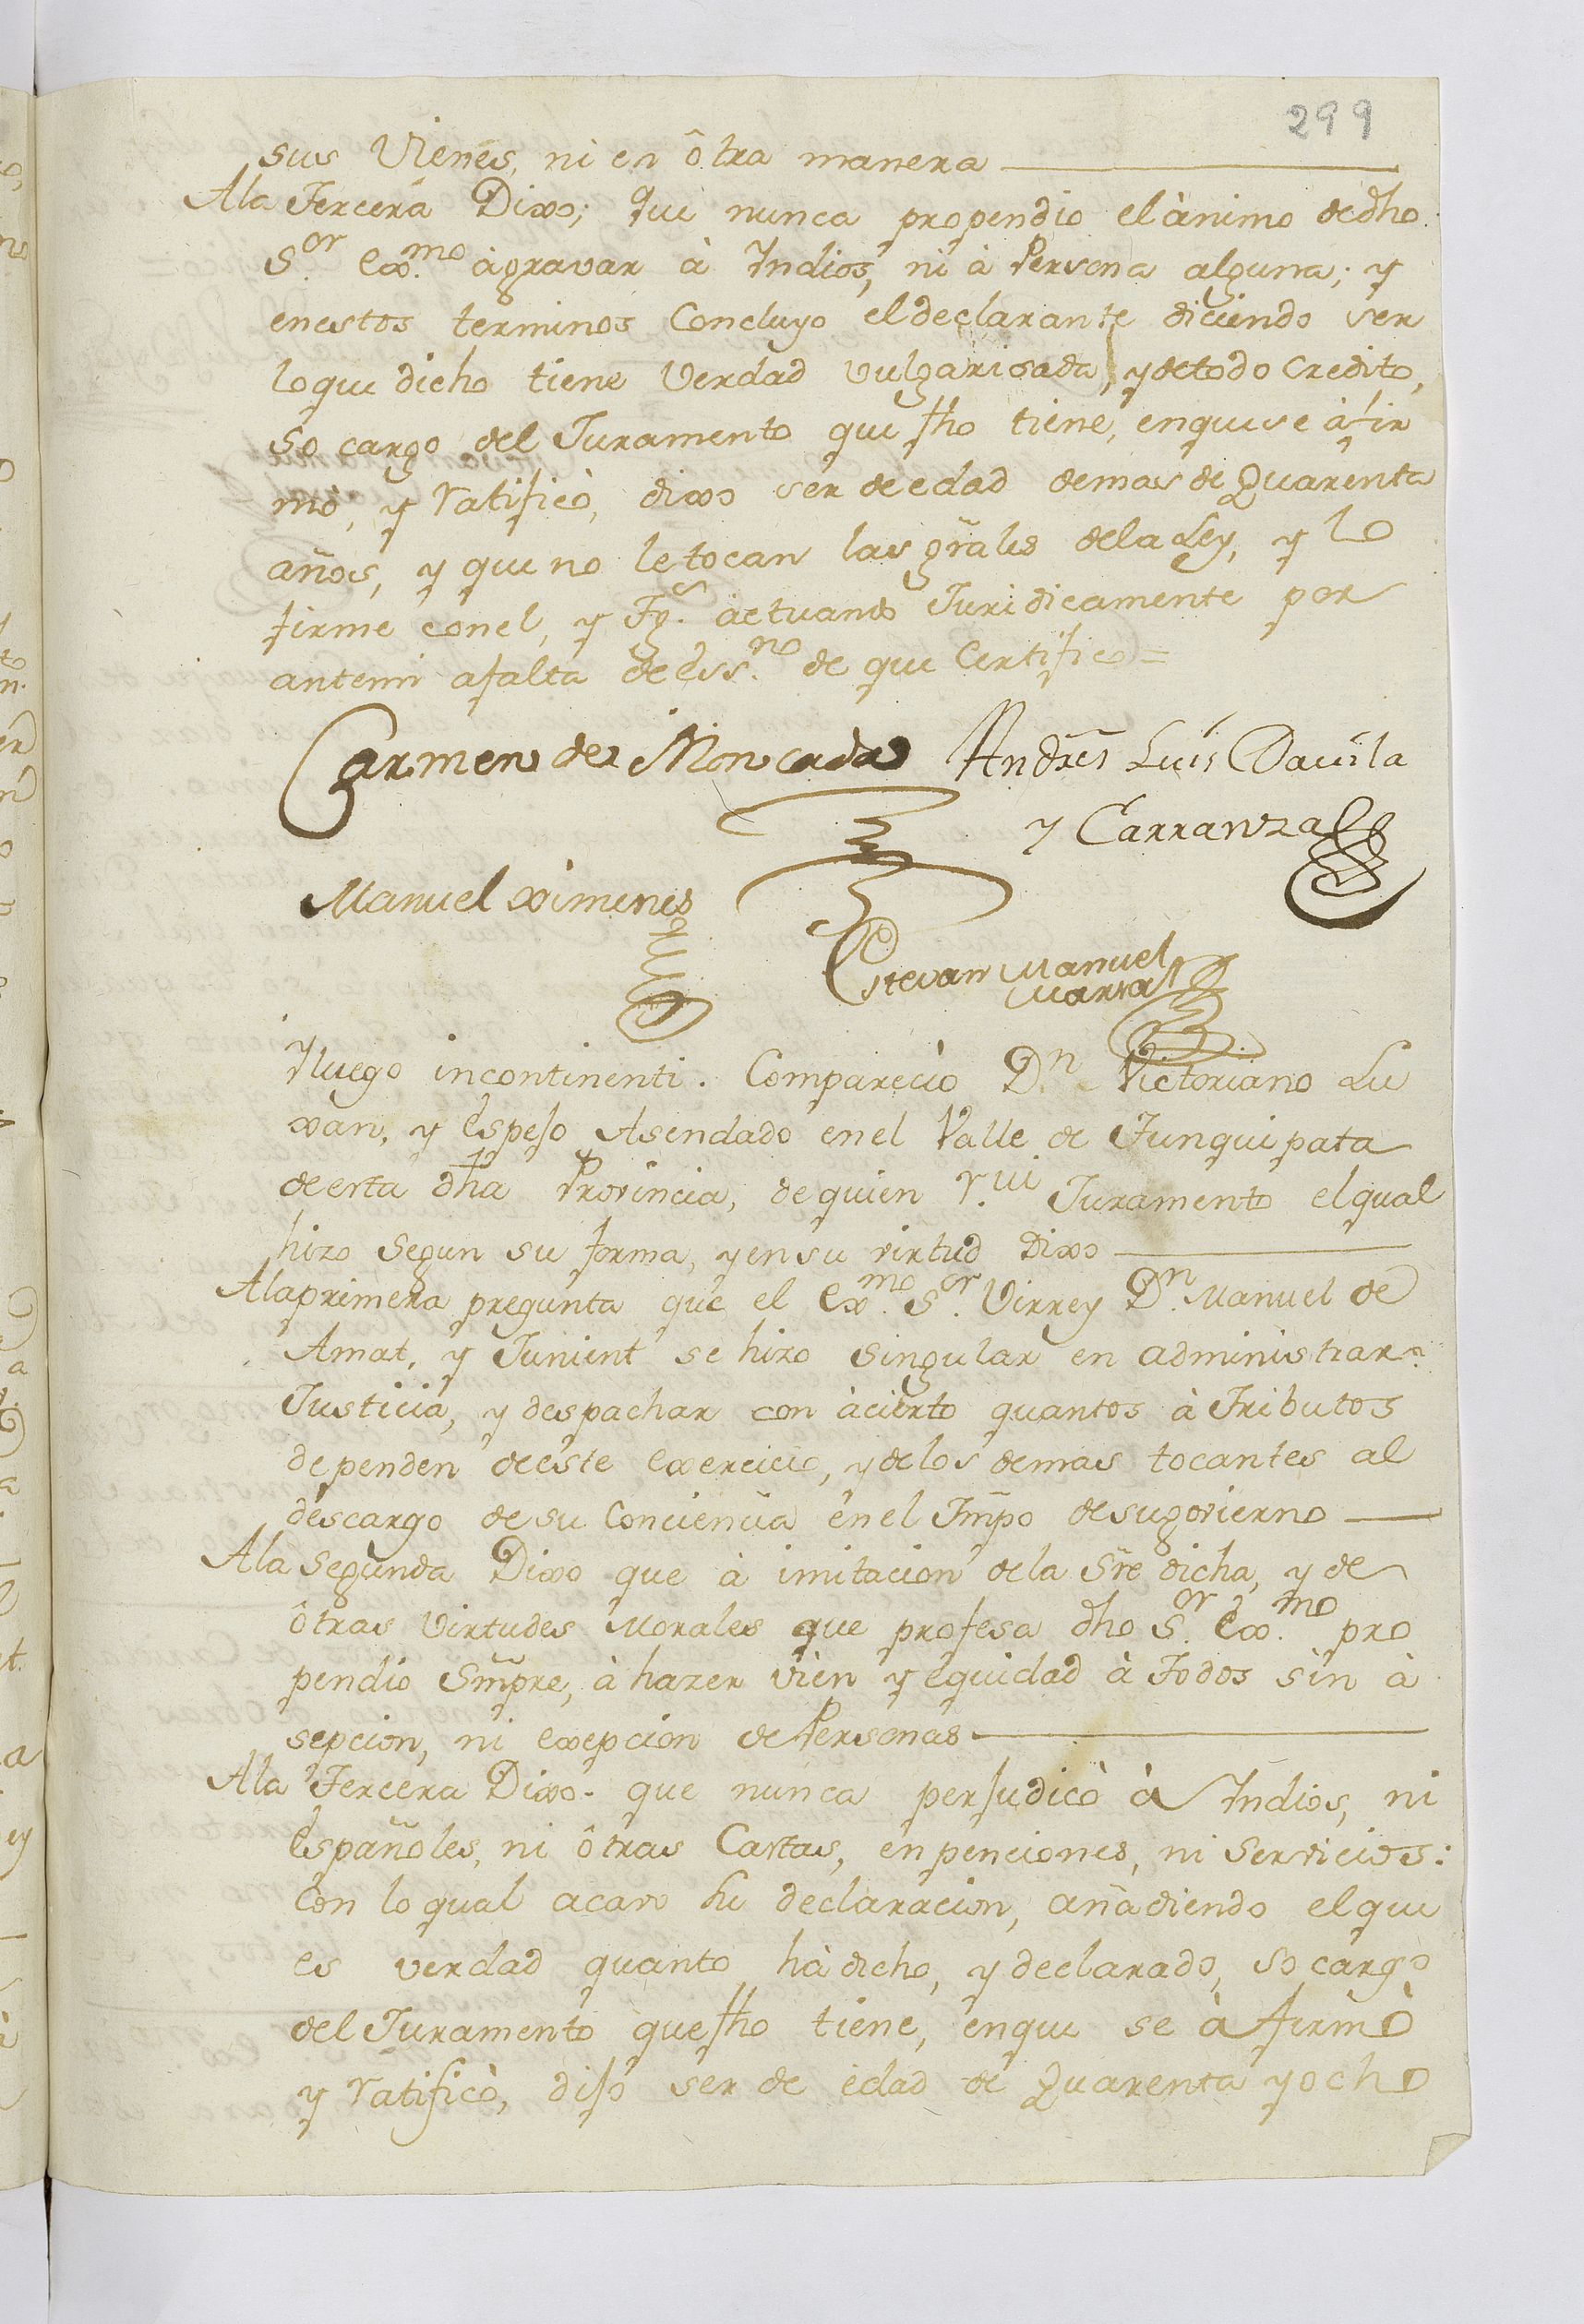 299
sus Vienes, ni en ôtra manera
Ala Tercera Dixo; Que nunca propendio el ànimo de dho
S.or Exx.mo àgravar à Yndios, ni à Persona alguna; y
enestos terminos Concluyo eldeclarante diciendo ser
loque dicho tiene Verdad vulgarisada, y detodo Credito,
so cargo del Juramento que fho tiene, enquese àfir
mó, y ratificò, dixo ser de edad demas de Quarenta
años, y que no letocan las grãles dela Ley, y lo
firme conel, y Tg.s àctuando Juridicamente por
antemi afalta de ess.no de que Certifico=
Carmen de Moncada
Andrẽs Luis Davila
y Carranza
Manuel Ximenes
Estevan Manuel
Yluego incontinenti. Compareciò D.n Victoriano Lu
xan, y Espejo Asendado enel Valle de Junquipata
de esta dha Provincia, dequien r.vi Juramento elqual
hizo Segun su forma, yensu virtud Dixo
Alaprimera pregunta que el Exx.mo S.or Virrey D.n Manuel de
Amat, y Junient se hizo Singular en administrar
Justicia, y despachar con àcierto quantos à Tributos
dependen deeste Exercicio, ydelos demas tocantes al
descargo de su Conciencia enel Tmpo desugovierno
Ala Segunda Dixo que à imitacion dela Sre dicha, y de
ôtras Virtudes Morales que profesa dho S.or Exx.mo pro
pendio Smpre, à hazer vien y equidad à Todos sin à
sepcion, ni exepcion de Personas
Ala Tercera Dixo. que nunca perjudicò à Yndios, ni
Españoles, ni ôtras Castas, en penciones, ni Servicios:
Con lo qual acavo su declaracion, añadiendo elque
es verdad quanto hà dicho, y declarado, so cargo
del Juramento quefho tiene, enque se àfirmò
y ratificò, dijo ser de edad de Quarenta yocho